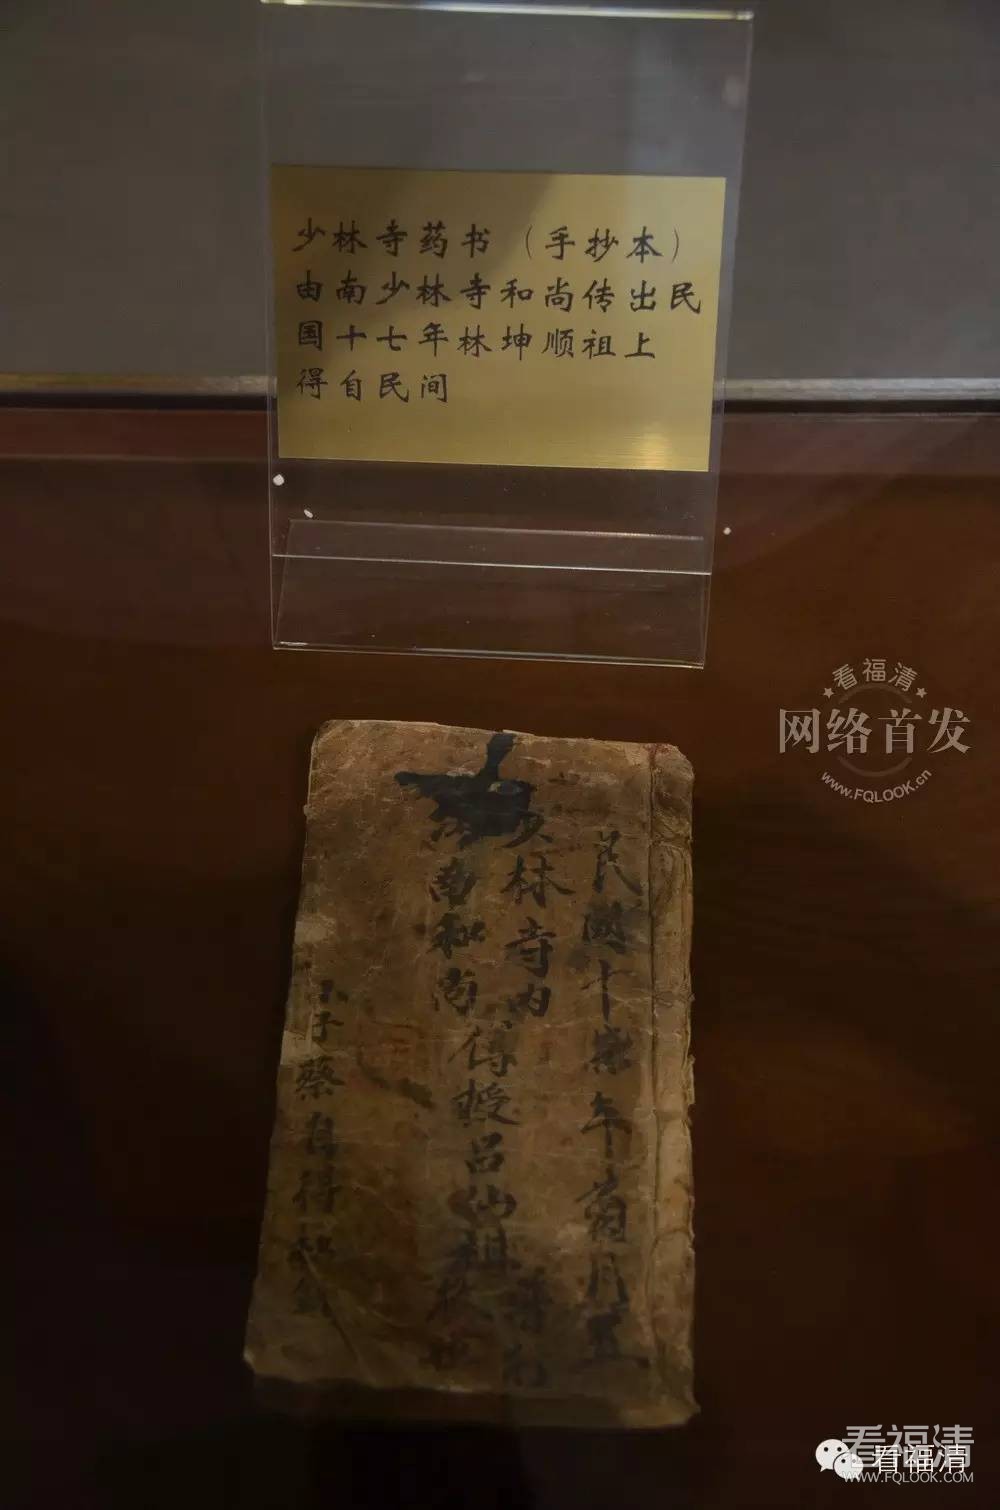 少林寺药书（手抄本）
由南少林寺和尚传出民
国十七年林坤顺祖上
得自民间
看福清
网络首发
www.FQLOOK.cn
民國十柒年
月五
少林寺内
南和尚傳授呂仙祖
子蔡自得
看福清
看福清
WWW.FQLOOK.COM